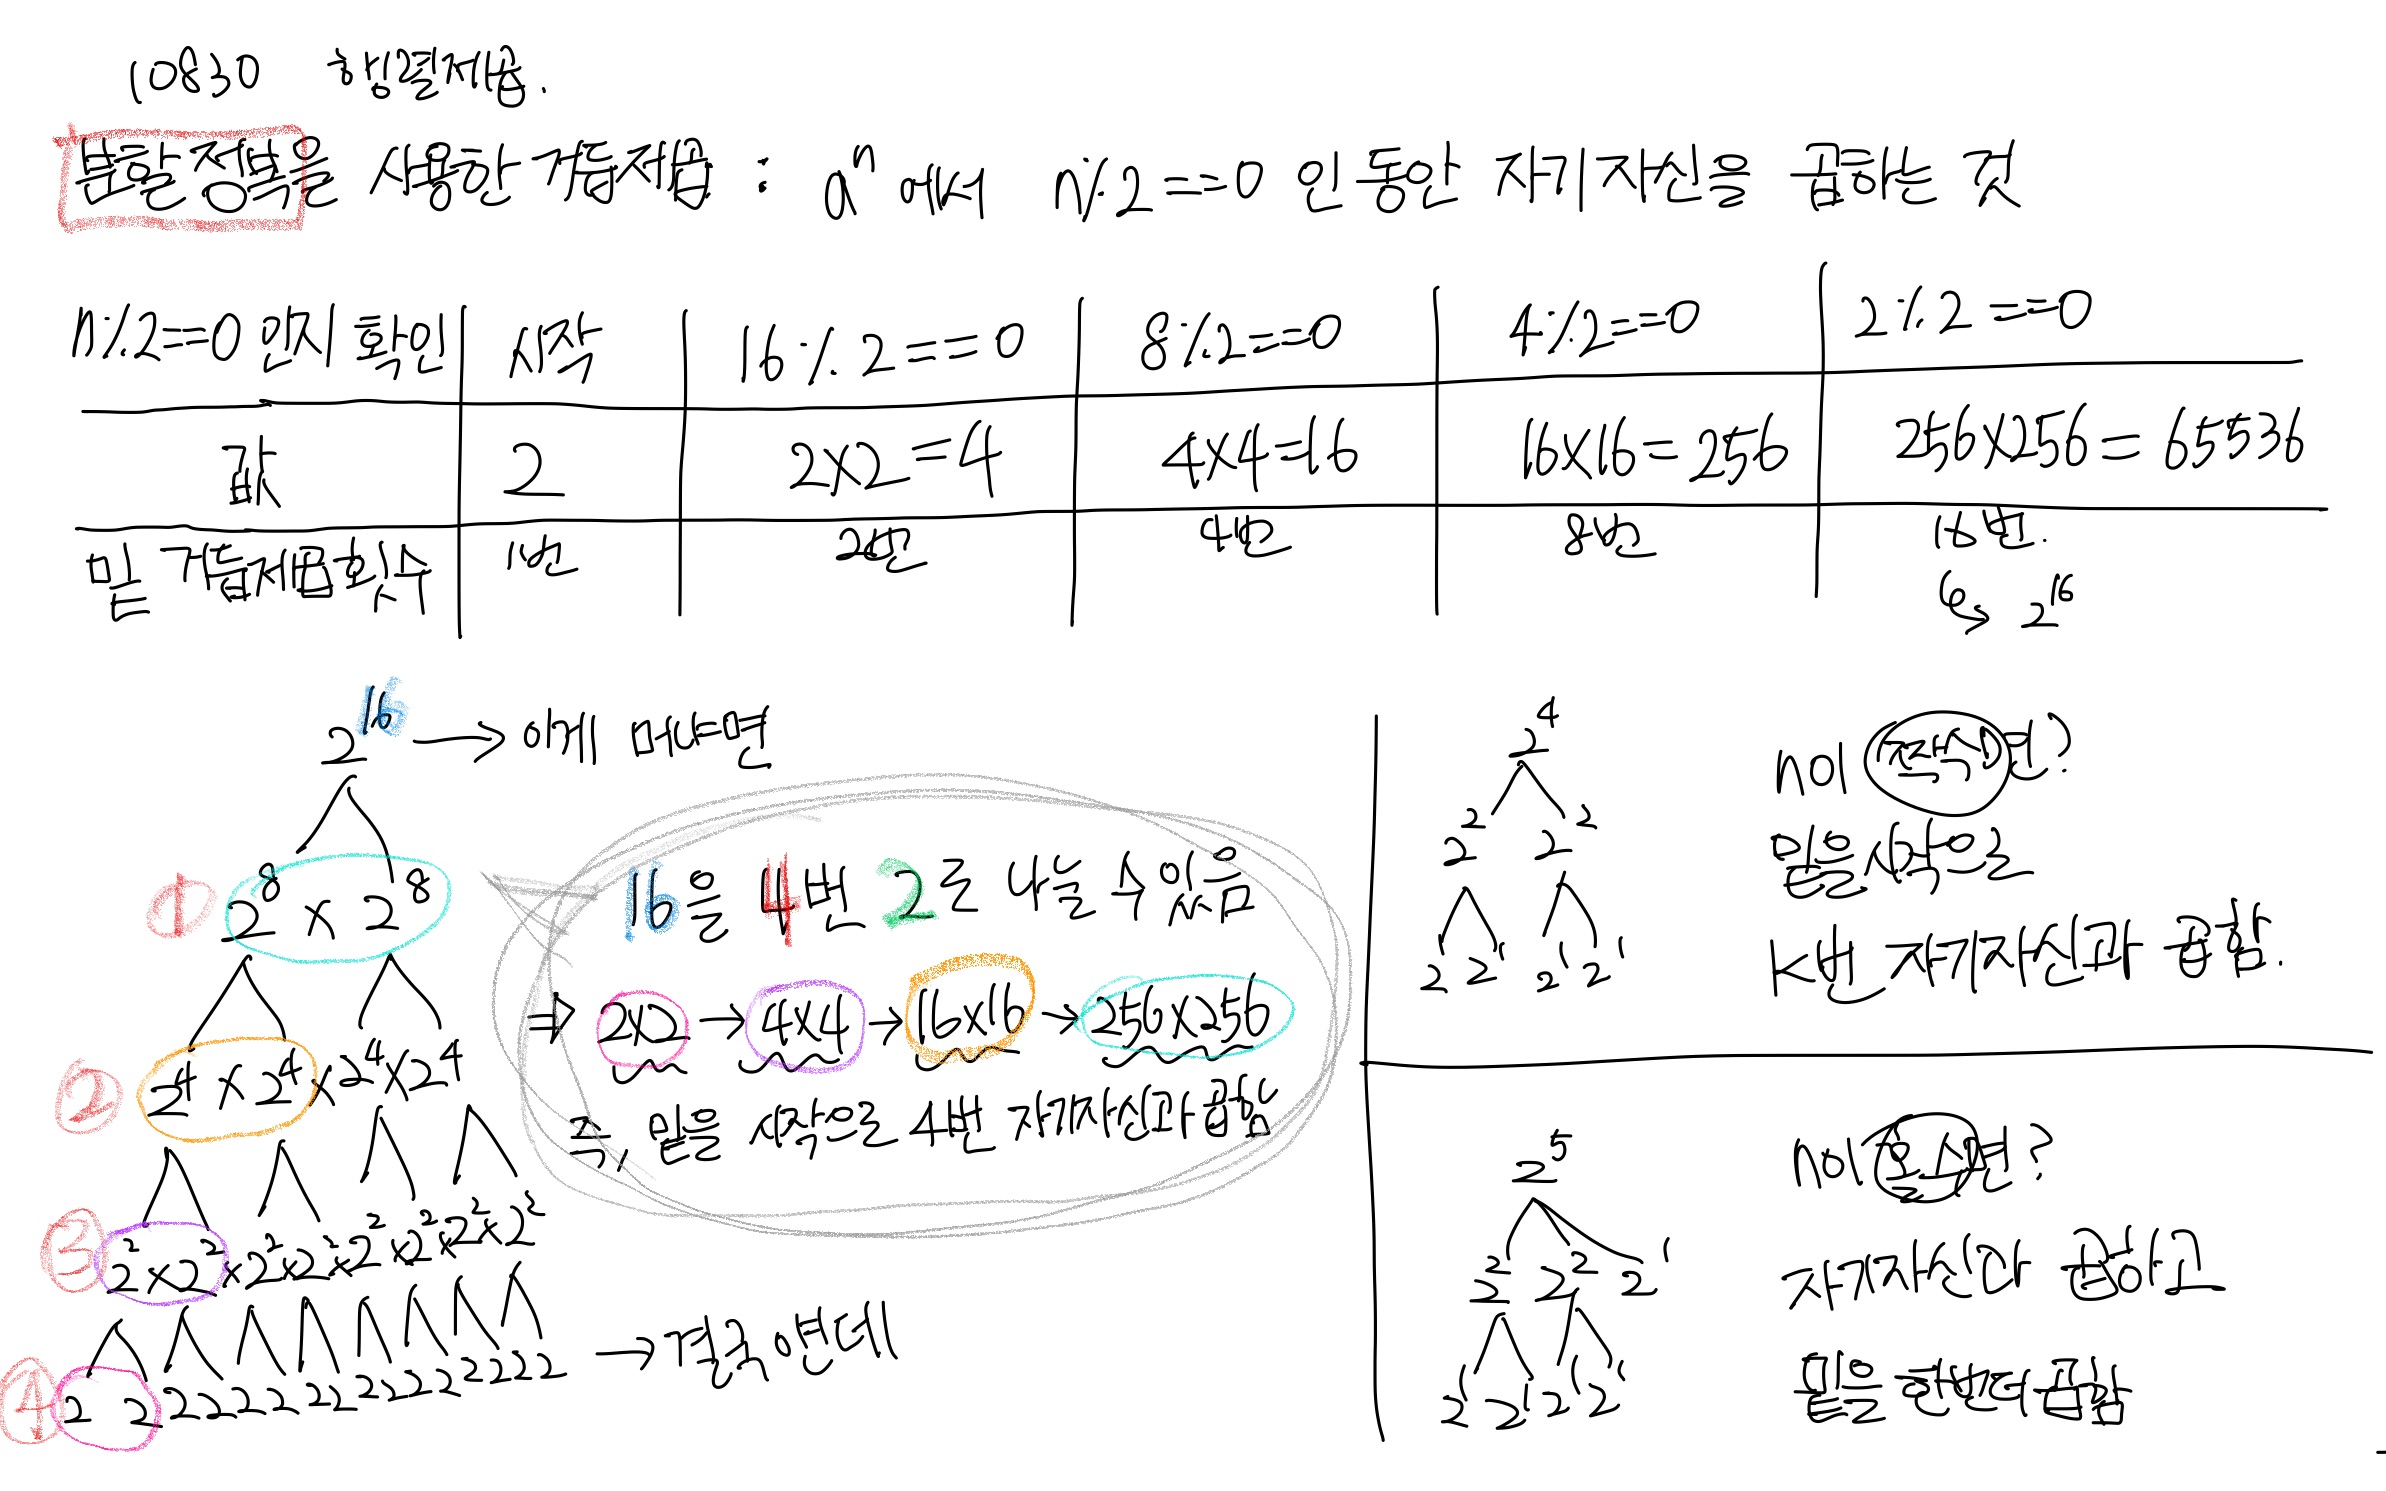 10830 행렬제곱.
분할정복을 사용한 거듭제곱 : aⁿ에서 n%2==0 인 동안 자기자신을 곱하는 것
n%2==0 인지 확인 시작 16%2==0 8%2==0 4%2==0 2%2==0
값 2 2×2=4 4×4=16 16×16=256 256×256=65536
밑 거듭제곱횟수 1번 2번 4번 8번 16번.
↳ 2¹⁶
2¹⁶ → 이게 머냐면
① 2⁸ × 2⁸
② 2⁴ × 2⁴ × 2⁴ × 2⁴
③ 2² × 2² × 2² × 2² × 2² × 2² × 2² × 2²
④ 2 2 2 2 2 2 2 2 2 2 2 2 2 2 2 2 → 결국 얀데
16을 4번 2로 나눌 수 있음
⇒ 2×2 → 4×4 → 16×16 → 256×256
즉, 밑을 시작으로 4번 자기자신과 곱함
2⁴
2² 2²
2 2¹ 2¹ 2¹
n이 짝수면?
밑을 시작으로
K번 자기자신과 곱함.
2⁵
2² 2² 2¹
2¹ 2¹ 2¹ 2¹
n이 홀수면?
자기자신과 곱하고
밑을 한번더 곱함